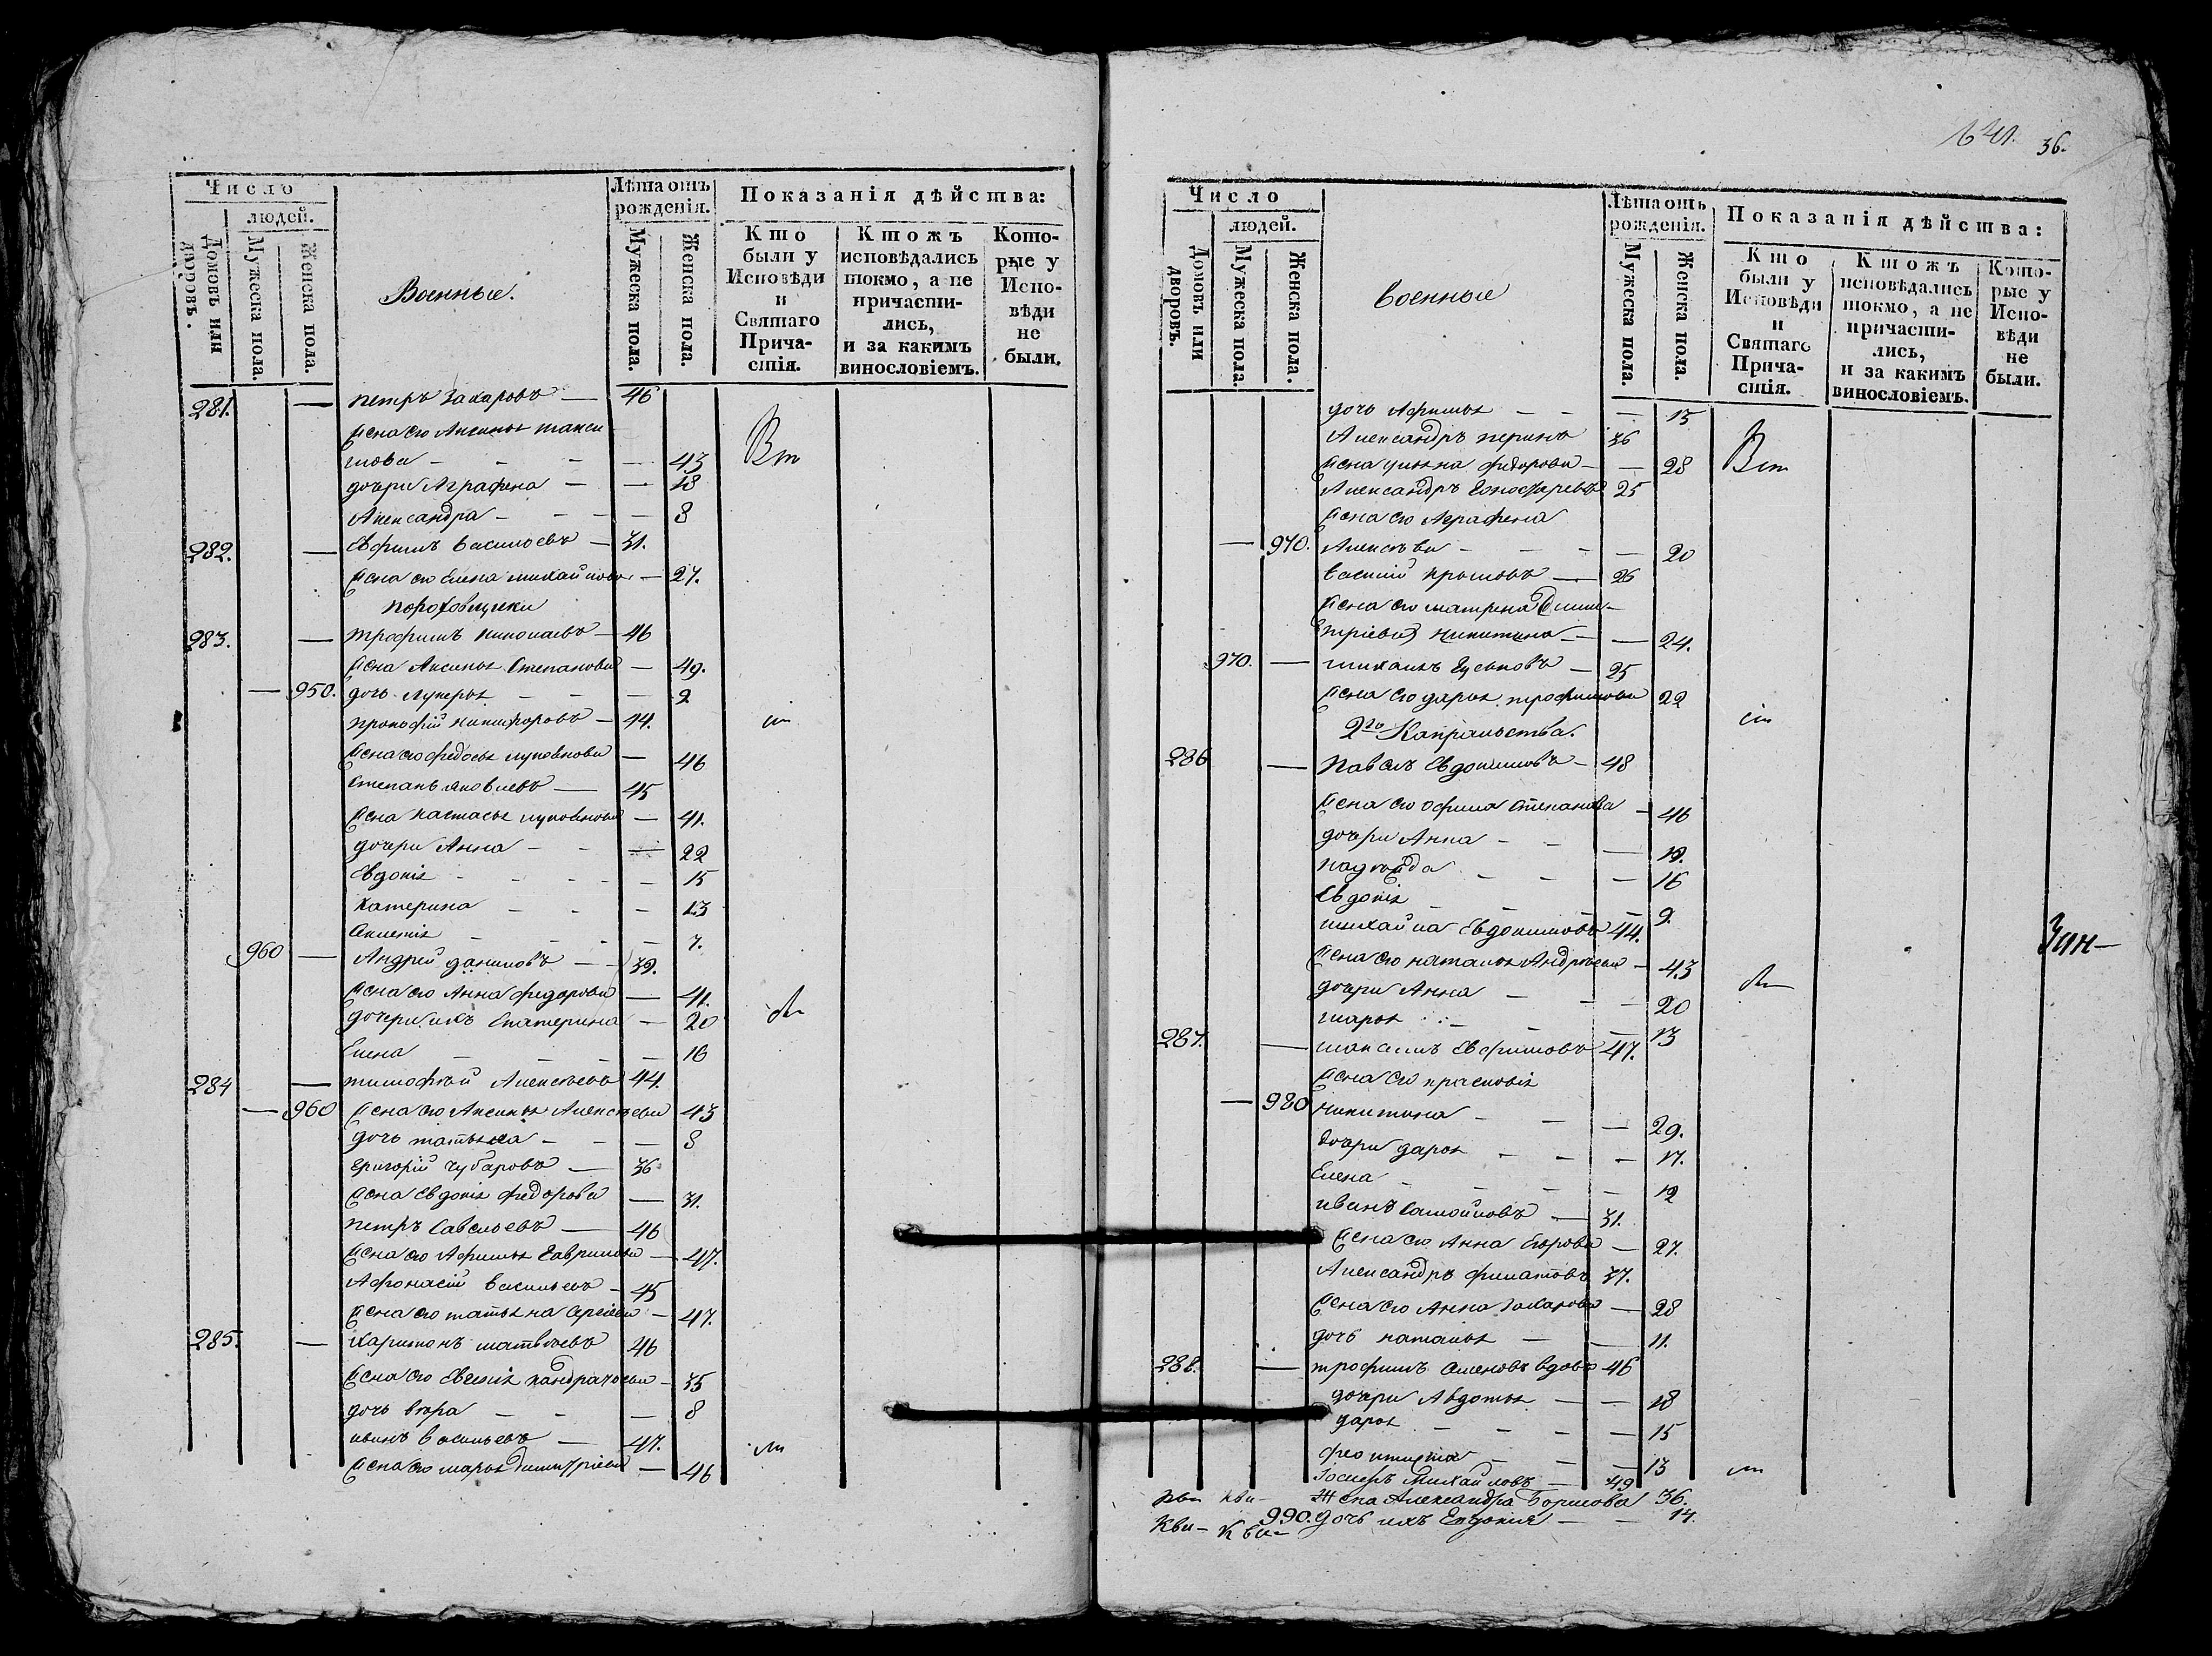 Число
людей.
Домовъ или дворовъ.
Мужеска пола.
Женска пола.
Военные.
Лѣта отъ рожденія.
Мужеска пола.
Женска пола.
Показанія дѣйства:
Кто были у Исповѣди и Святаго Прича-стія.
Ктожъ исповѣдались токмо, а не причасти-лись, и за какимъ винословіемъ.
Кото-рые у Испо-вѣди не были.
281. — Петръ Захаровъ — 46
Жена его Аксинья Макси
мова — — — — 43
дочери Аграфена — — 18
Александра — — — — 8
282. — Ефимъ Васильевъ — 31.
Жена его Елена Михайлова — 27.
Пороховщики
283. — Трофимъ Николаевъ — 46
Жена Аксинья Степанова — 49.
— 950. дочь Лукерья — — — 9
Прокофій Никифоровъ — 44.
Жена его Федосья — 46
Степанъ Яковлевъ — 45
Жена Настасья — 41.
дочери Анна — — — 22
Евдокія — — — — 15
Катерина — — — 13
— — — — 7.
960 — Андрей Даниловъ — — 39.
Жена его Анна Федорова — 41.
дочери ихъ Екатерина — 20
Елена — — — — 16
284 — Тимофѣй Алексѣевъ 44.
— 960 Жена его Аксинья Алексѣева 43
дочь Татьяна — — — 8
Григорій Чубаровъ — 36
Жена Евдокія Федорова — 31.
Петръ Савельевъ — 46
Жена его Афимья Гаврилова — 47.
Афонасій Васильевъ — 45
Жена его Татьяна Сергѣева — 47.
285. — Харитонъ Матвѣевъ 46
Жена его Евгенія Кандратьева — 35
дочь Вѣра — — — 8
Иванъ Васильевъ — 47.
Жена его Марья Димитріева — 46
36.
Число
людей.
Домовъ или дворовъ.
Мужеска пола.
Женска пола.
Военные
Лѣта отъ рожденія.
Мужеска пола.
Женска пола.
Показанія дѣйства:
Кто были у Исповѣди и Святаго Прича-стія.
Ктожъ исповѣдались токмо, а не причасти-лись, и за какимъ винословіемъ.
Кото-рые у Испо-вѣди не были.
дочь Афимья — — — 13
Александръ 36
Жена Федорова — — 28
Александръ 25
Жена его Аграфена
— 970. Алексѣева — — — — 20
Василій — 26
Жена его Матрена Дими-
тріева Никитина — — 24.
970. — Михаилъ — 25
Жена его Дарья Трофимова 22
2го Капральства.
286 — Павелъ Евдокимовъ — 48
Жена его Офима Степанова — 46
дочери Анна — — — 19.
Надежда — — — 16
Евдокія — — — 9.
Михайла Евдокимовъ 44.
Жена его Наталья Андрѣева — 43
дочери Анна — — — 20
Марья — — — 13
287. — Максимъ Ефимовъ 47.
Жена его Прасковія
— 980 Никитина — — — 29.
дочери Дарья — — — 17.
Елена — — — — 12
Иванъ Самойловъ — 31.
Жена его Анна Егорова — 27.
Александръ Филатовъ 37.
Жена его Анна Захарова — 28
дочь Наталья — — 11.
288. — Трофимъ Семеновъ вдовъ 46
дочери Авдотья — — 18
Дарья — — — — 15
— — — 13
Іосифъ Михайловъ — 49
Жена Александра Борисова 36.
990. дочь ихъ Евдокия — — 14.